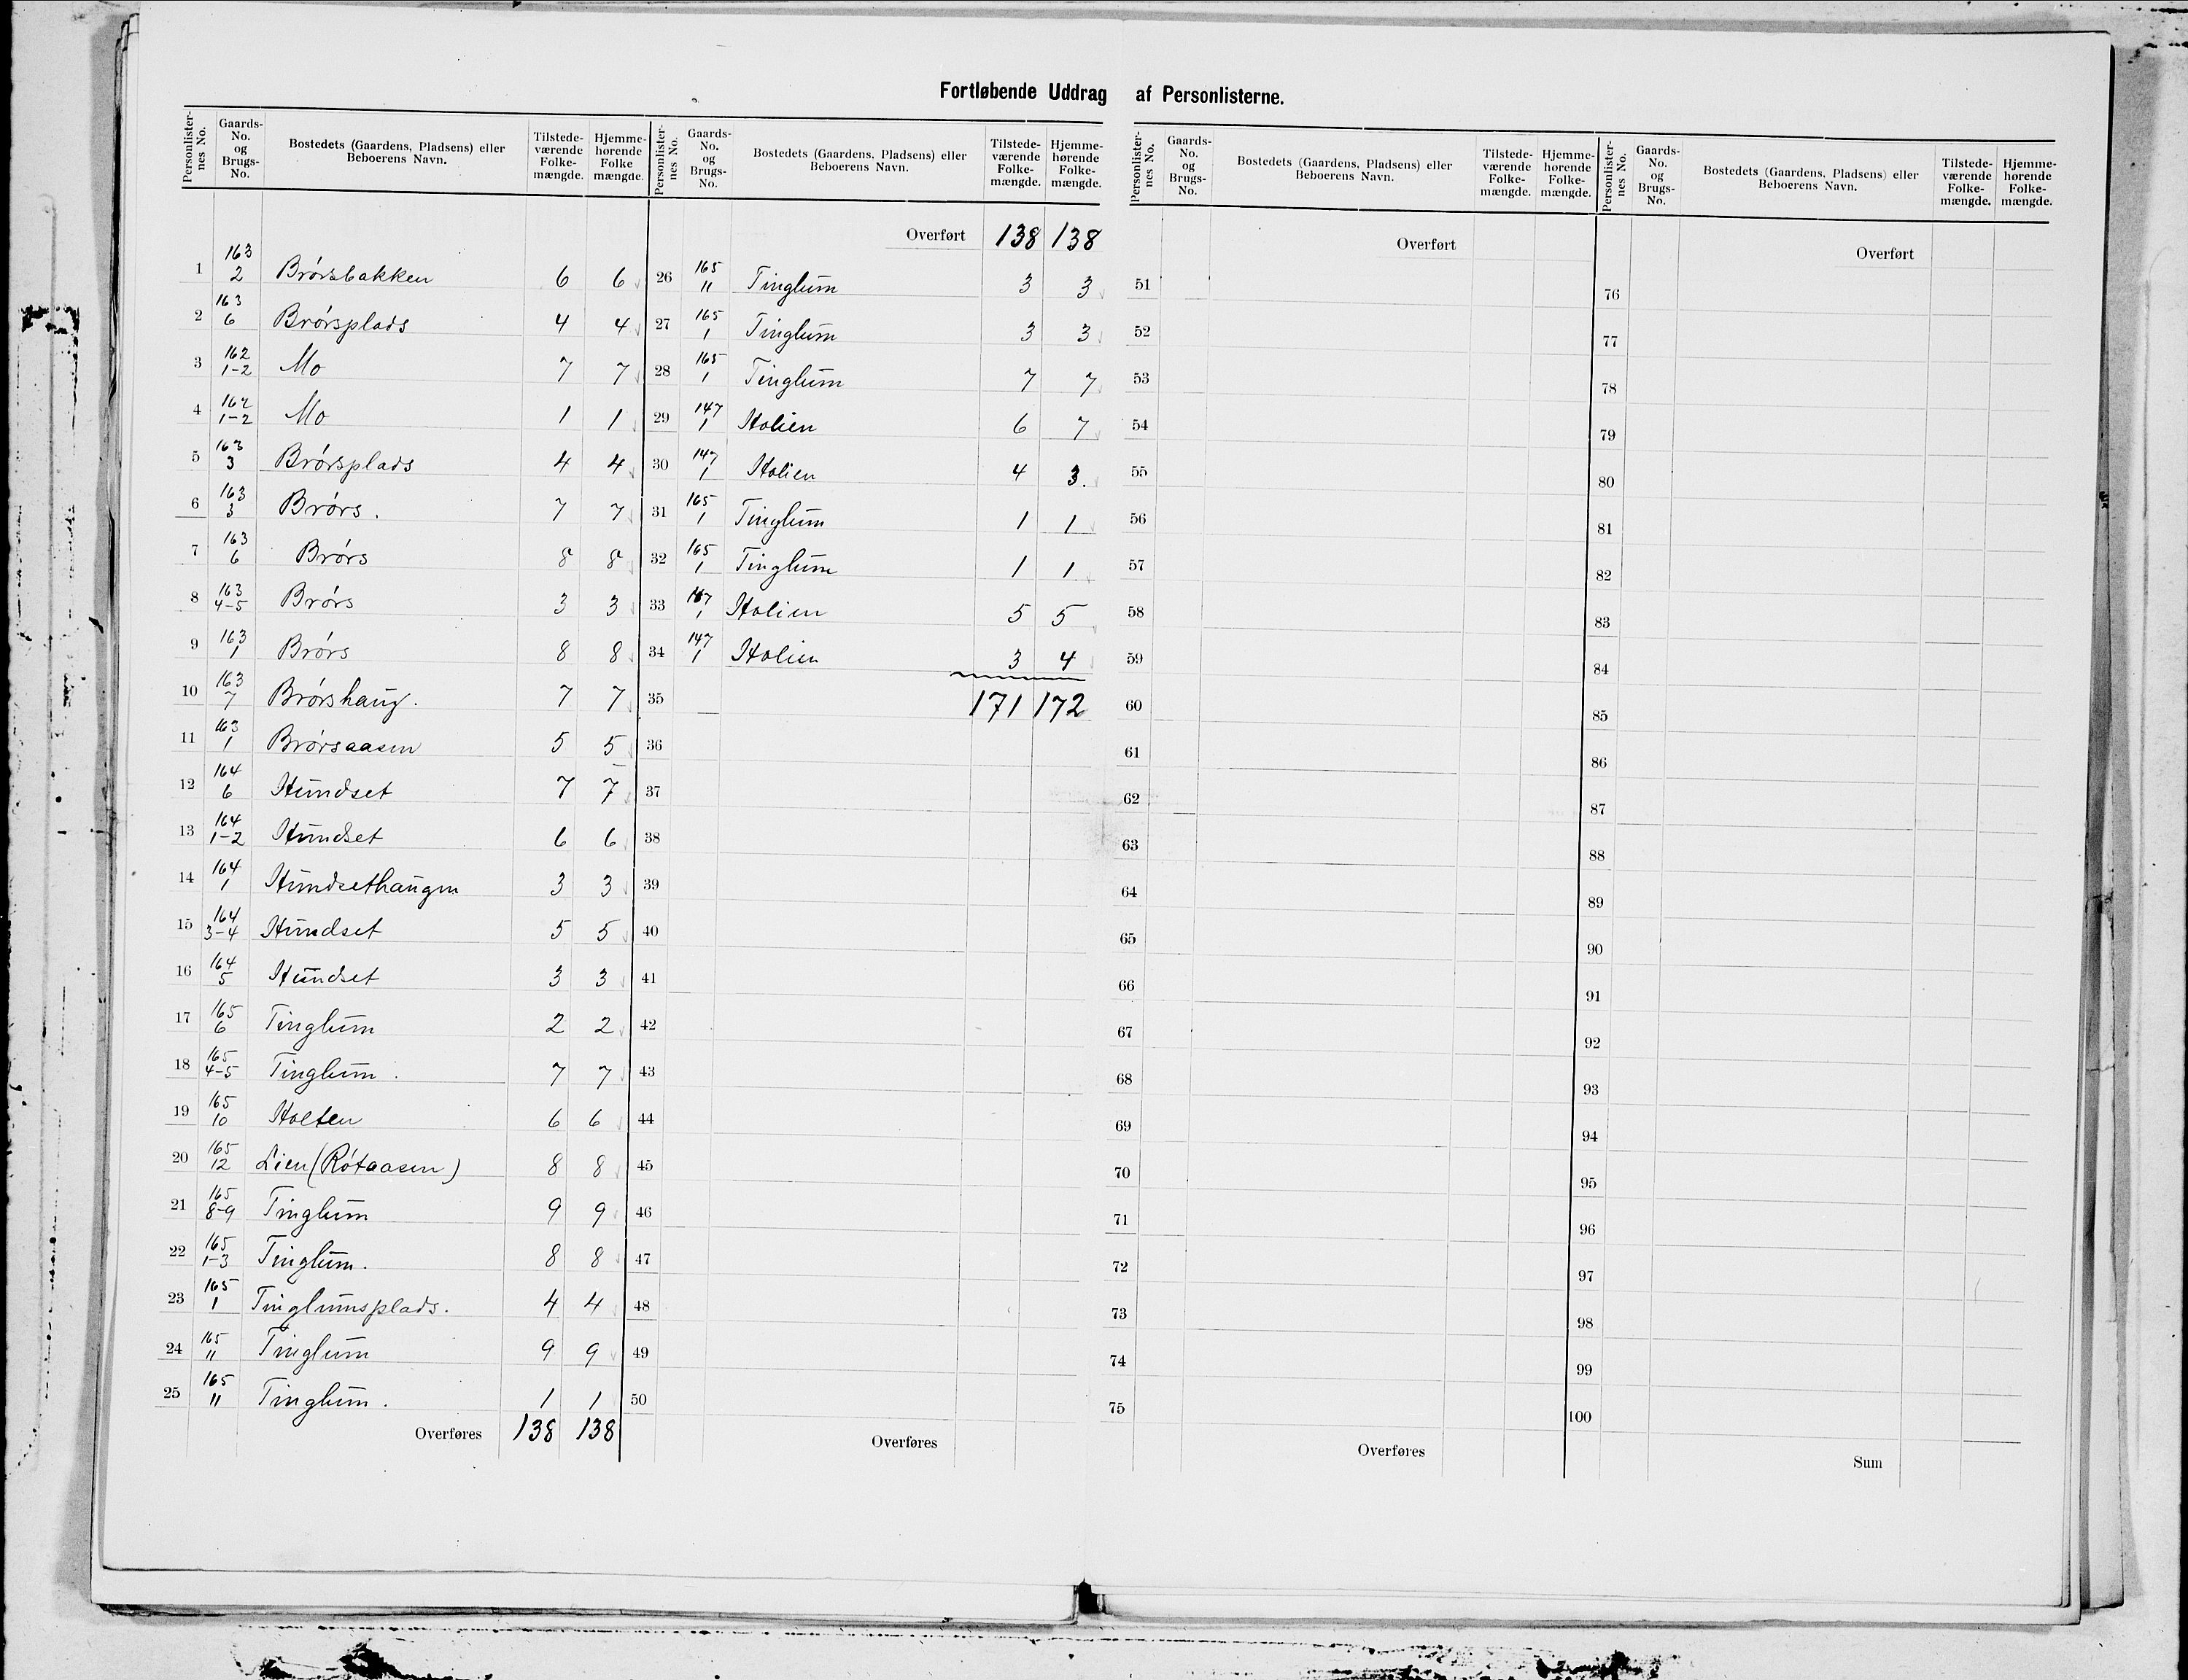 Fortløbende Uddrag af Personlisterne.
Personlisternes No. Gaards-No. og Brugs-No. Bostedets (Gaardens, Pladsens) eller Beboerens Navn. Tilstedeværende Folkemængde. Hjemmehørende Folkemængde.
1 163/2 Brørsbakken 6 6
2 163/6 Brørsplads 4 4
3 162/1-2 Mo 7 7
4 162/1-2 Mo 1 1
5 163/3 Brørsplads 4 4
6 163/3 Brørs. 7 7
7 163/6 Brørs 8 8
8 163/4-5 Brørs 3 3
9 163/1 Brørs 8 8
10 163/7 Brørshaug. 7 7
11 163/1 Brørsaasen 5 5
12 164/6 Hundset 7 7
13 164/1-2 Hundset 6 6
14 164/1 Hundsethaugen 3 3
15 164/3-4 Hundset 5 5
16 164/5 Hundset 3 3
17 165/6 Tinglum 2 2
18 165/4-5 Tinglum. 7 7
19 165/10 Holten 6 6
20 165/12 Lien (Røtaasen) 8 8
21 165/8-9 Tinglum 9 9
22 165/1-3 Tinglum. 8 8
23 165/1 Tinglumsplads. 4 4
24 165/11 Tinglum 9 9
25 165/11 Tinglum. 1 1
Overføres 138 138
Personlisternes No. Gaards-No. og Brugs-No. Bostedets (Gaardens, Pladsens) eller Beboerens Navn. Tilstedeværende Folkemængde. Hjemmehørende Folkemængde.
Overført 138 138
26 165/11 Tinglum 3 3
27 165/1 Tinglum 3 3
28 165/1 Tinglum 7 7
29 147/1 Holien 6 7
30 147/1 Holien 4 3.
31 165/1 Tinglum 1 1
32 165/1 Tinglum 1 1
33 147/1 Holien 5 5
34 147/1 Holien 3 4
35 171 172
36
37
38
39
40
41
42
43
44
45
46
47
48
49
50
Overføres
Personlisternes No. Gaards-No. og Brugs-No. Bostedets (Gaardens, Pladsens) eller Beboerens Navn. Tilstedeværende Folkemængde. Hjemmehørende Folkemængde.
Overført
51
52
53
54
55
56
57
58
59
60
61
62
63
64
65
66
67
68
69
70
71
72
73
74
75
Overføres
Personlisternes No. Gaards-No. og Brugs-No. Bostedets (Gaardens, Pladsens) eller Beboerens Navn. Tilstedeværende Folkemængde. Hjemmehørende Folkemængde.
Overført
76
77
78
79
80
81
82
83
84
85
86
87
88
89
90
91
92
93
94
95
96
97
98
99
100
Sum